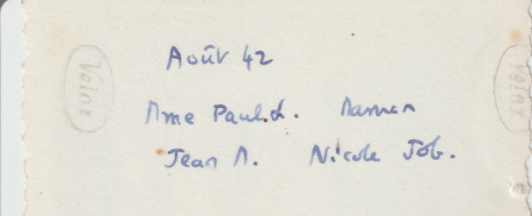 Août 42
Mme Paul.L. Maman
Jean M. Nicole Job.
Velox
Velox